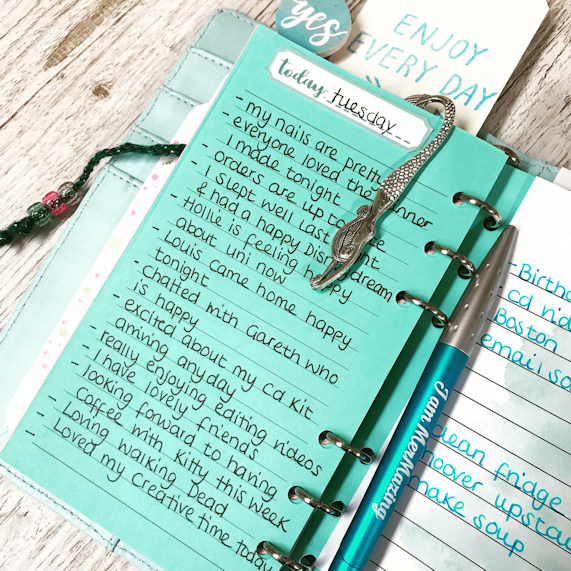 yes
ENJOY
EVERY DAY
today: tuesday
- my nails are pretty
- everyone loved the dinner
I made tonight
- orders are up to date
- I slept well last night
& had a happy Disney dream
- Hollie is feeling happy
about uni now
- Louis came home happy
tonight
- chatted with Gareth who
is happy
- excited about my cd kit
arriving anyday
- really enjoying editing videos
- I have lovely friends
- looking forward to having
coffee with Kitty this week
- Loving Walking Dead
- Loved my creative time today
I am MerMazing
- Birthd
cd
Boston
email so
clean fridge
hoover upstai
make soup